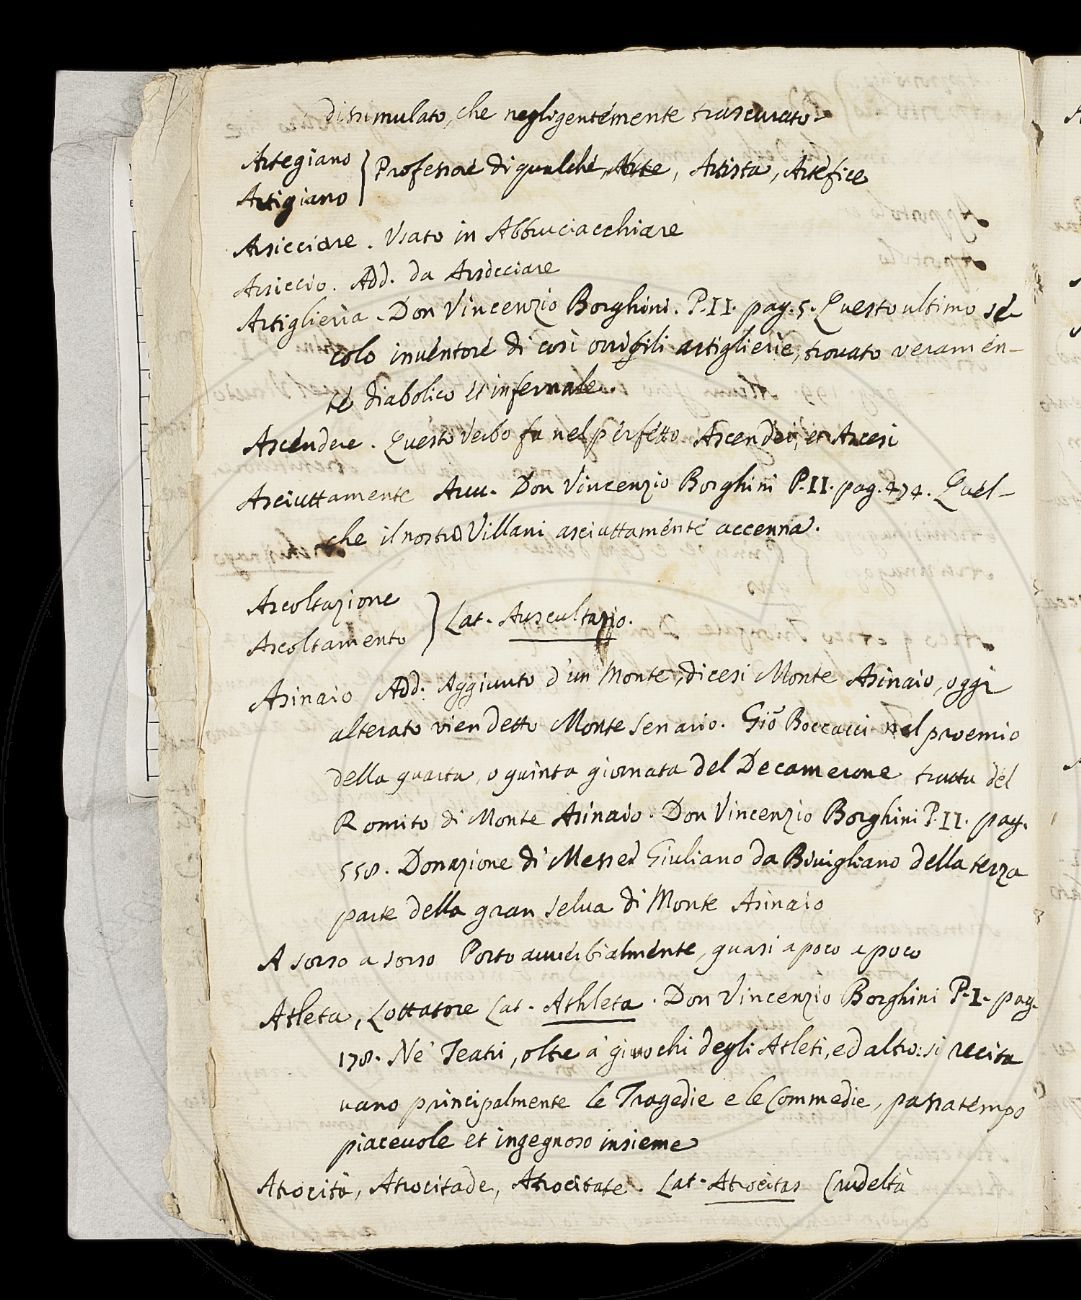 dissimulato, che negligentemente trascurato.
Artegiano
Artigiano } Professore di qualche Arte, Artista, Artefice
Arsicciare. Usato in Abbruciacchiare
Arsiccio. Add. da Arsicciare
Artiglieria. Don Vincenzio Borghini. P. II. pag. 5. Questo ultimo se-
colo inventore di così orribili artiglierie, trovato veramen-
te diabolico et infernale.
Ascendere. Questo Verbo fa nel perfetto Ascendei, et Ascesi
Asciuttamente Avv. Don Vincenzio Borghini P. II. pag. 474. Quel-
che il nostro Villani asciuttamente accenna.
Ascoltazione
Ascoltamento } Lat. Auscultazio.
Asinaio Add: Aggiunto d'un Monte, dicesi Monte Asinaio, oggi
alterato vien detto Monte Senario. Giō Boccacci nel proemio
della quarta, o quinta giornata del Decamerone tratta del
Romito di Monte Asinaio. Don Vincenzio Borghini P. II. pag.
558. Donazione di Messer Giuliano da Bivigliano della terza
parte della gran selva di Monte Asinaio
A sorso a sorso Posto avverbialmente, quasi a poco a poco
Atleta, Lottatore Lat. Athleta. Don Vincenzio Borghini P. I. pag.
178. Ne' Teatri, oltre a' giuochi degli Atleti, ed altro: si recita
vano principalmente le Tragedie e le Commedie, passatempo
piacevole et ingegnoso insieme
Atrocità, Atrocitade, Atrocitate. Lat. Atrocitas Crudeltà